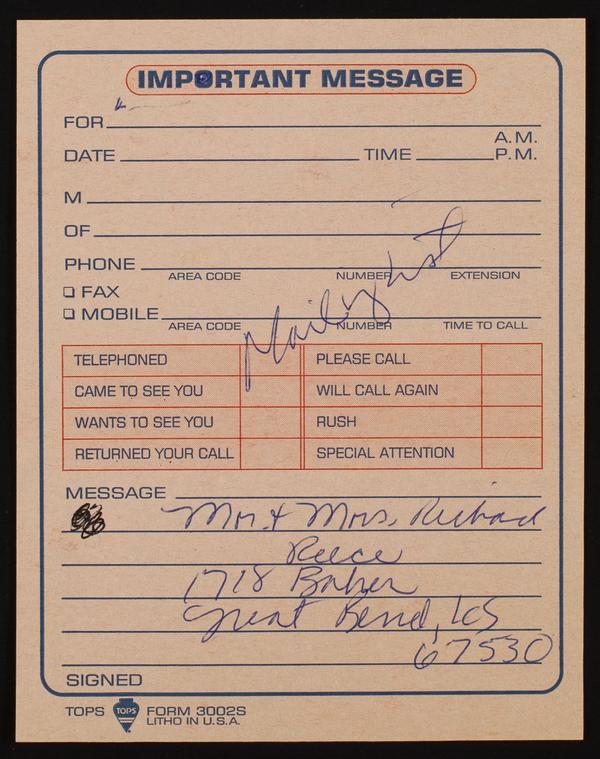 IMPORTANT MESSAGE
FOR
A.M.
DATE TIME P.M.
M
OF
PHONE
AREA CODE NUMBER EXTENSION
FAX
MOBILE
AREA CODE NUMBER TIME TO CALL
Mailing List
TELEPHONED PLEASE CALL
CAME TO SEE YOU WILL CALL AGAIN
WANTS TO SEE YOU RUSH
RETURNED YOUR CALL SPECIAL ATTENTION
MESSAGE
Mr. & Mrs. Richard
Reece
1718 Baker
Great Bend, KS
67530
SIGNED
TOPS TOPS FORM 3002S
LITHO IN U.S.A.